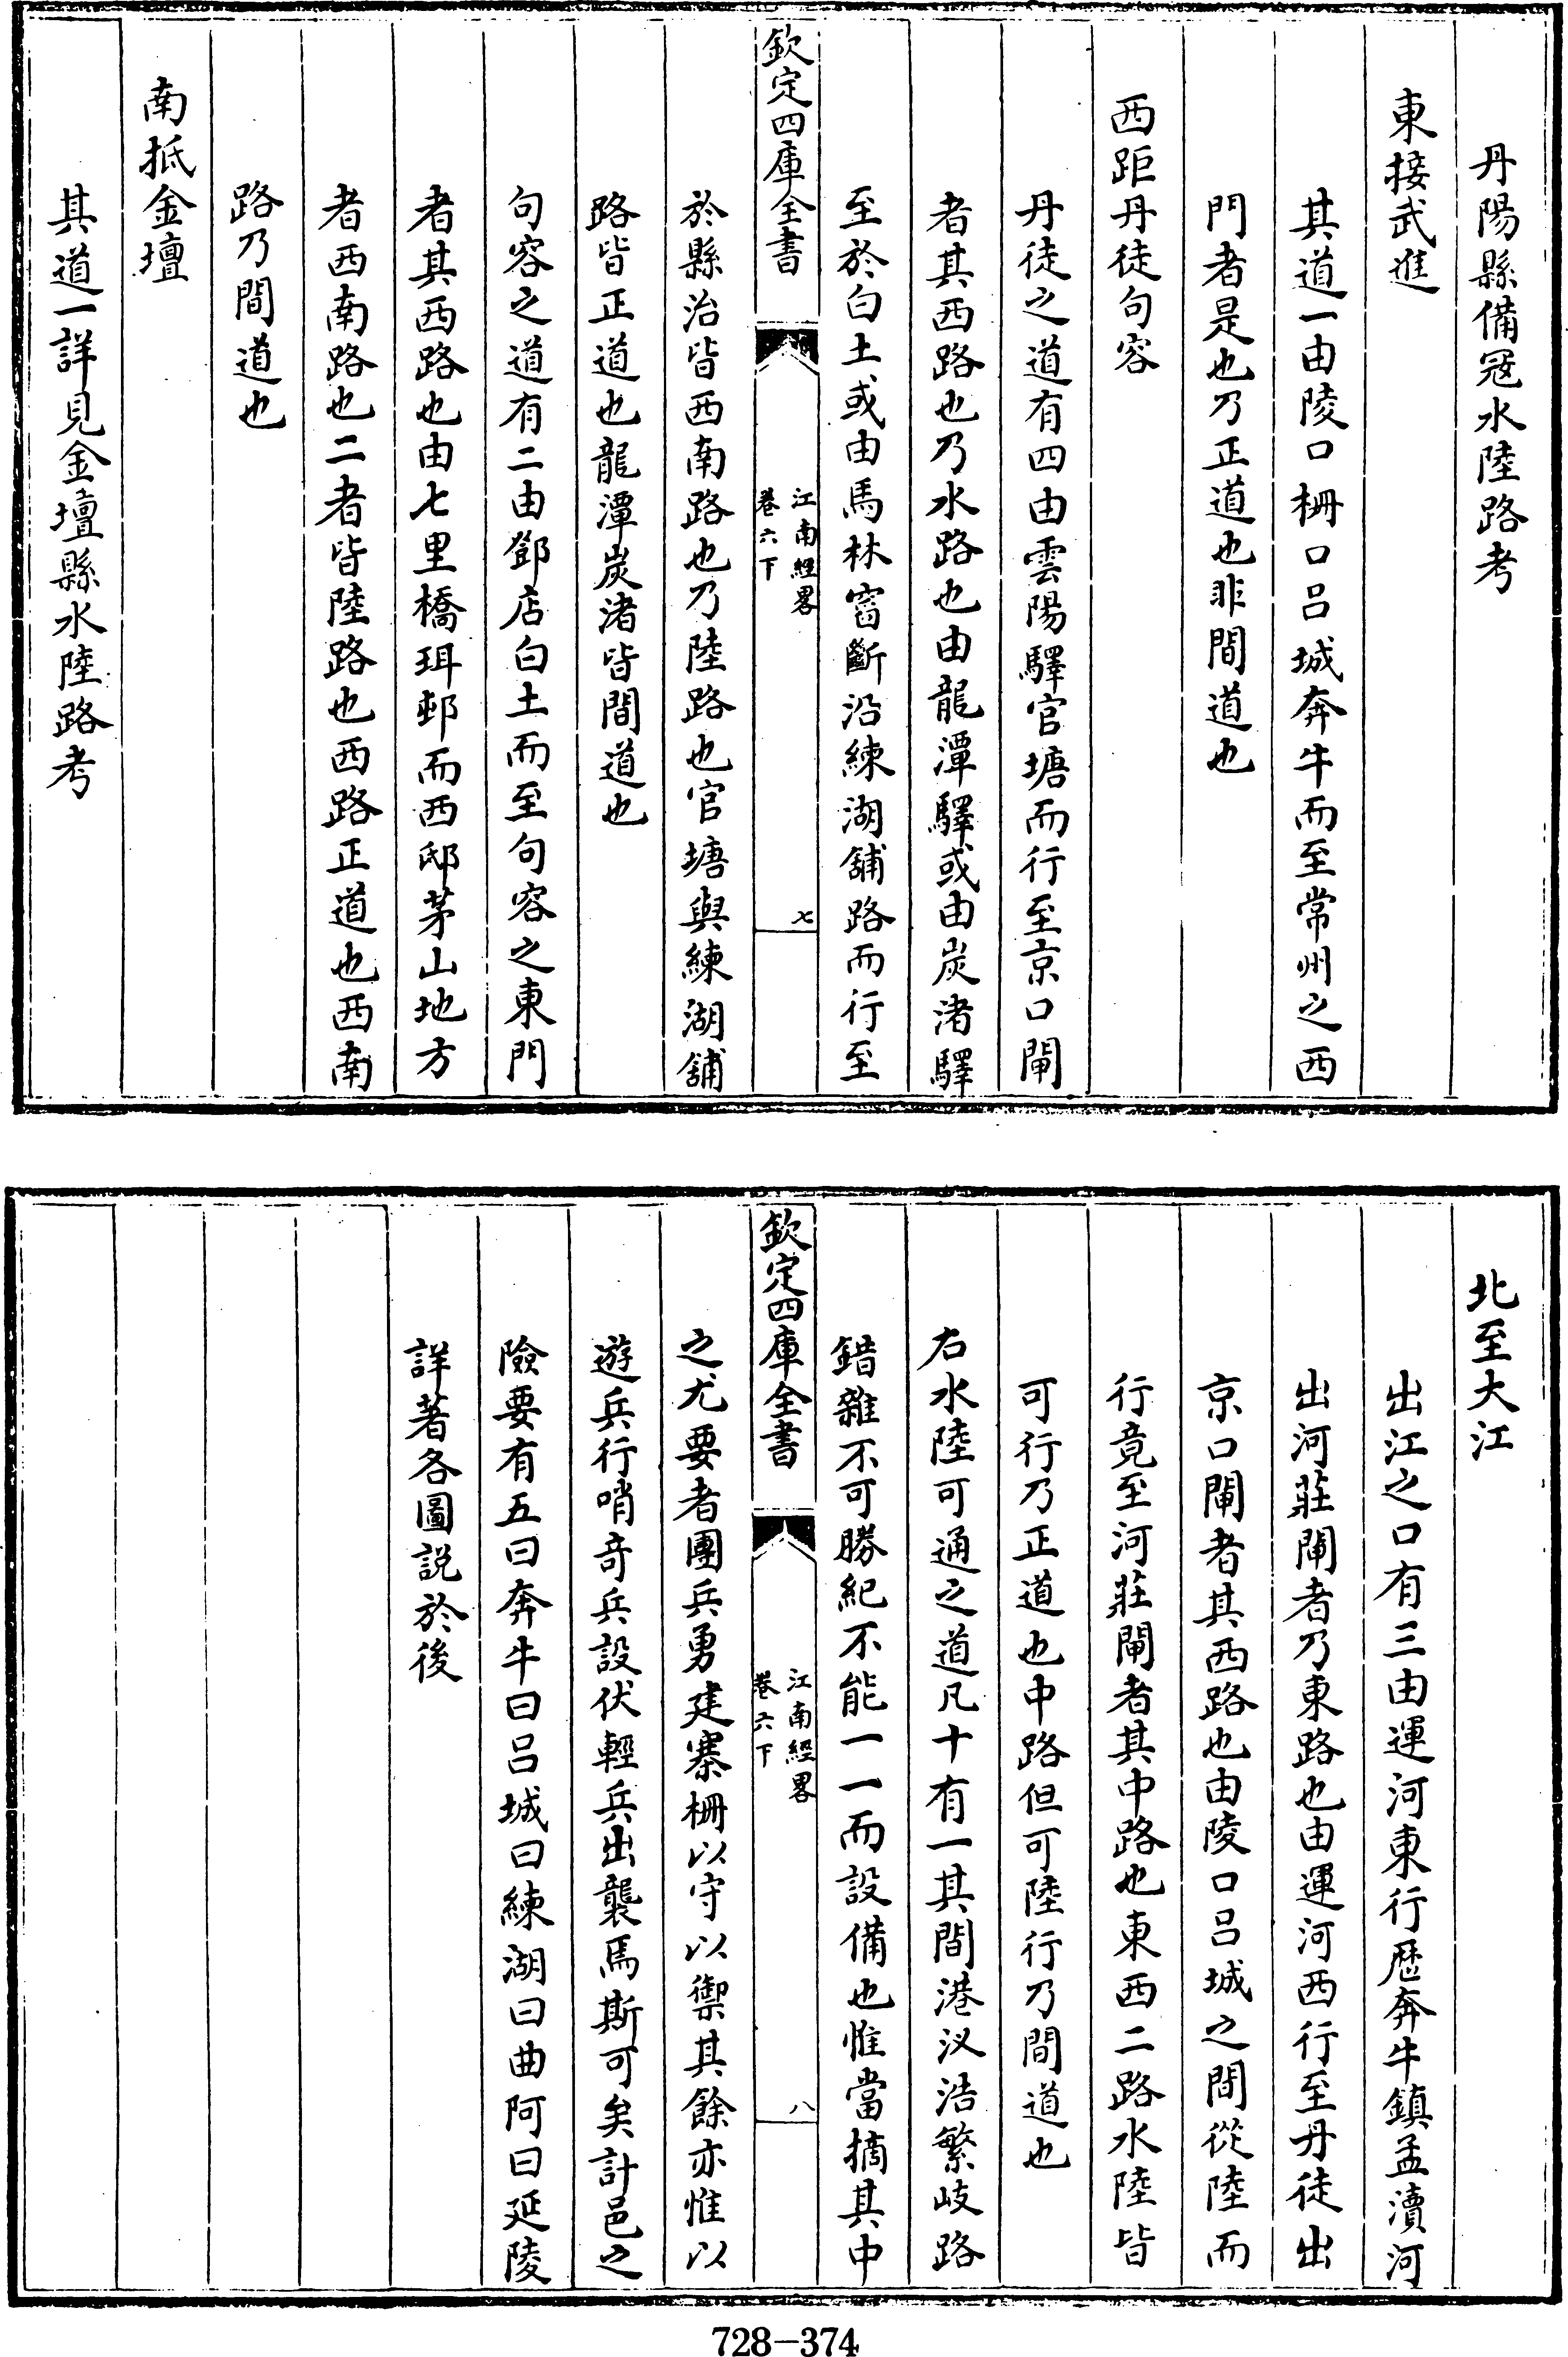 丹陽縣備冦水陸路考
東接武進
其道一由陵口柵口呂城奔牛而至常州之西
門者是也乃正道也非間道也
西距丹徒句容
丹徒之道有四由雲陽驛官塘而行至京口閘
者其西路也乃水路也由龍潭驛或由炭渚驛
至於白土或由馬林窑斷沿練湖舖路而行至
欽定四庫全書
江南經畧
卷六下
七
於縣治皆西南路也乃陸路也官塘與練湖舖
路皆正道也龍潭炭渚皆間道也
句容之道有二由鄧店白土而至句容之東門
者其西路也由七里橋珥邨而西邸茅山地方
者西南路也二者皆陸路也西路正道也西南
路乃間道也
南抵金壇
其道一詳見金壇縣水陸路考
北至大江
出江之口有三由運河東行歷奔牛鎮孟瀆河
出河莊閘者乃東路也由運河西行至丹徒出
京口閘者其西路也由陵口呂城之間從陸而
行竟至河莊閘者其中路也東西二路水陸皆
可行乃正道也中路但可陸行乃間道也
右水陸可通之道凡十有一其間港汊浩繁岐路
錯雜不可勝紀不能一一而設備也惟當摘其中
欽定四庫全書
江南經畧
卷六下
八
之尤要者團兵勇建寨柵以守以禦其餘亦惟以
遊兵行哨竒兵設伏輕兵出襲焉斯可矣計邑之
險要有五曰奔牛曰呂城曰練湖曰曲阿曰延陵
詳著各圖説於後
728-374